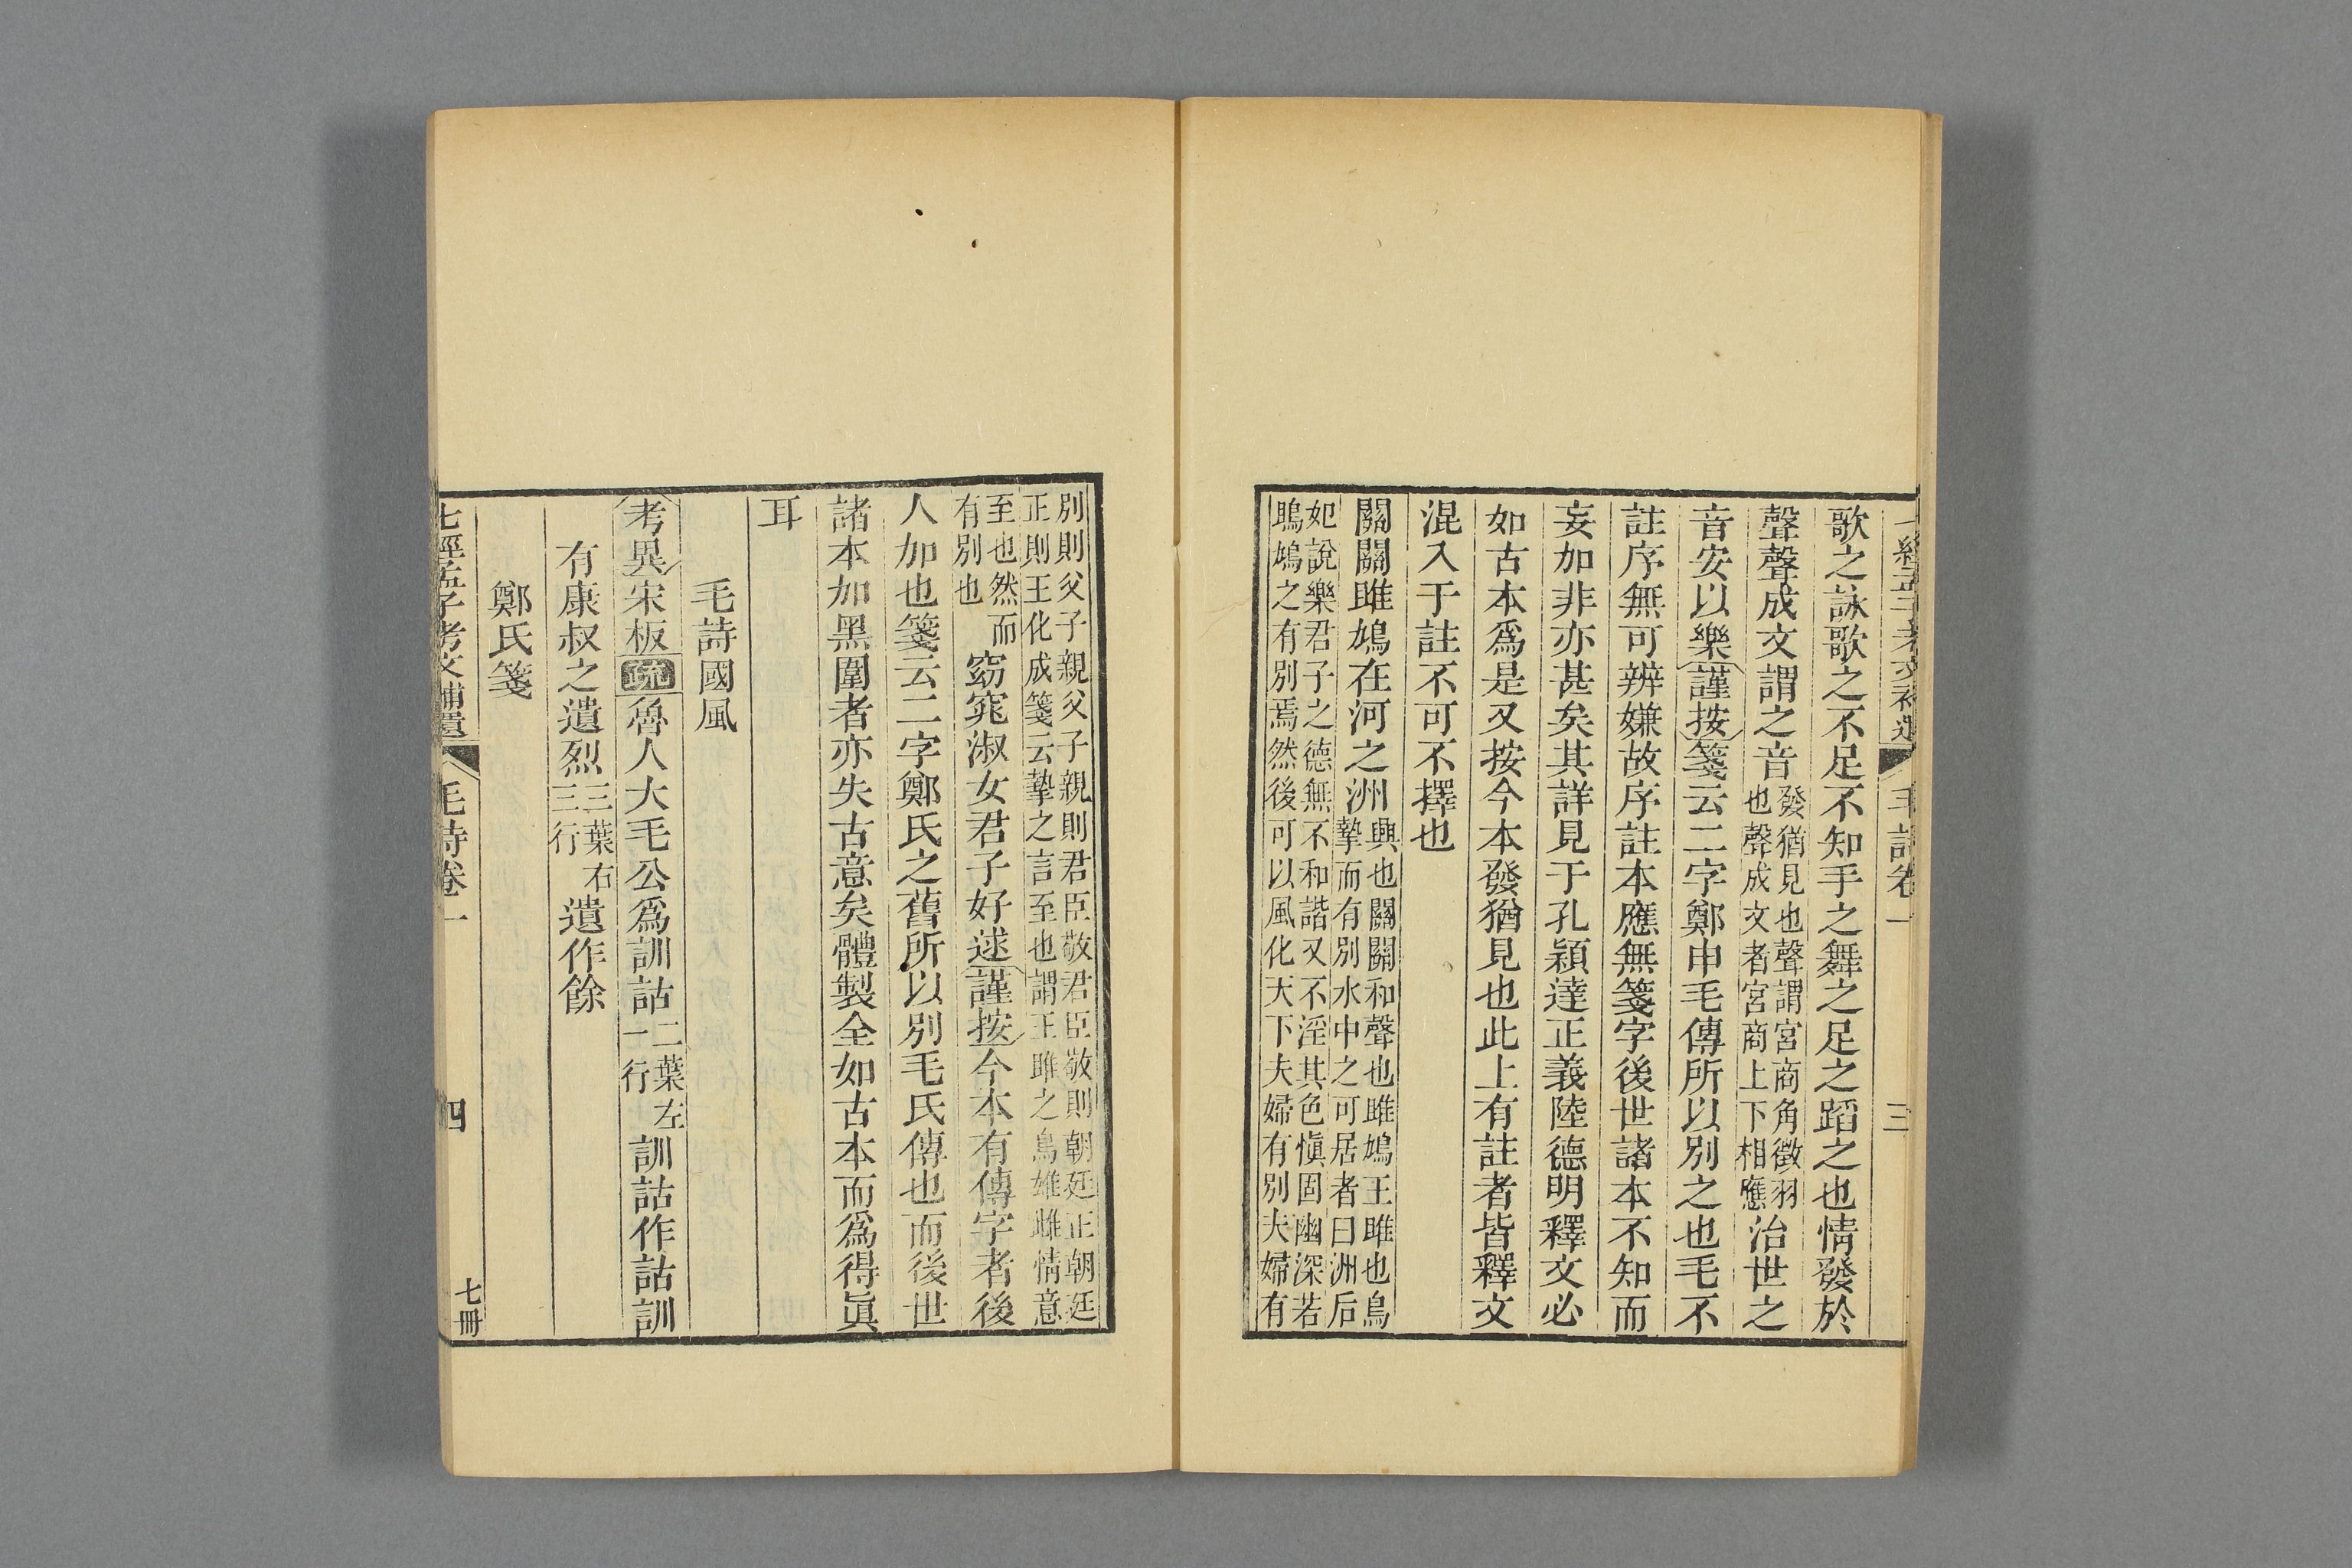 歌之詠歌之不足不知手之舞之足之蹈之也情發於
聲聲成文謂之音發猶見也聲謂宮商角徵羽也聲成文者宮商上下相應治世之
音安以樂謹按箋云二字鄭申毛傳所以別之也毛不
註序無可辨嫌故序註本應無箋字後世諸本不知而
妄加非亦甚矣其詳見于孔穎達正義陸德明釋文必
如古本爲是又按今本發猶見也此上有註者皆釋文
混入于註不可不擇也
關關雎鳩在河之洲興也關關和聲也雎鳩王雎也鳥摯而有別水中之可居者曰洲后
妃說樂君子之德無不和諧又不淫其色愼固幽深若
鴡鳩之有別焉然後可以風化天下夫婦有別夫婦有
別則父子親父子親則君臣敬君臣敬則朝廷正朝廷
正則王化成箋云摯之言至也謂王雎之鳥雄雌情意
至也然而有別也窈窕淑女君子好逑謹按今本有傳字者後
人加也箋云二字鄭氏之舊所以別毛氏傳也而後世
諸本加黑圍者亦失古意矣體製全如古本而爲得眞
耳
毛詩國風
考異宋板疏魯人大毛公爲訓詁二葉左一行訓詁作詁訓
有康叔之遺烈三葉右三行遺作餘
鄭氏箋
七經孟子考文補遺
毛詩卷一
四
七冊
毛詩卷一
三